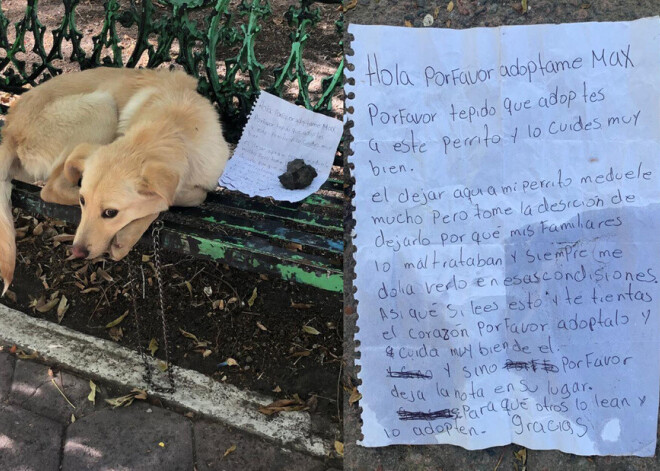 Hola PorFavor adoptame MAX
PorFavor tepido que adoptes
a este perrito y lo cuides muy
bien.
el dejar aqui a mi perrito meduele
mucho Pero tome la desición de
dejarlo por qué mis Familiares
lo maltrataban y siempre me
dolia verlo en esascondisiones.
Asi que si lees esto y te tientas
el corazón PorFavor adoptalo y
cuida muy biende el.
y sino PorFavor
deja la nota en su lugar.
Para que otros lo lean y
lo adopten. Gracias